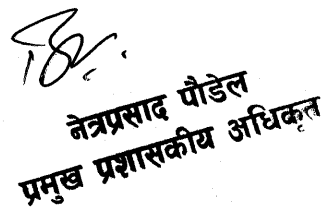 नेत्रप्रसाद पौडेल
प्रमुख प्रशासकीय अधिकृत